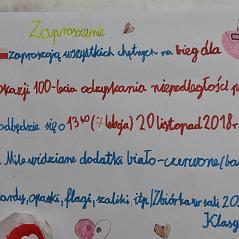 Zaproszenie
zapraszają wszystkich chętnych na bieg dla
okazji 100-lecia odzyskania niepodległości p
odbędzie się o 13⁴⁰ (7 lekcja) 20 listopad 2018r.
Mile widziane dodatki biało-czerwone/ba
opaski, flagi, szaliki itp./Zbiórka w sali 20
Klasy